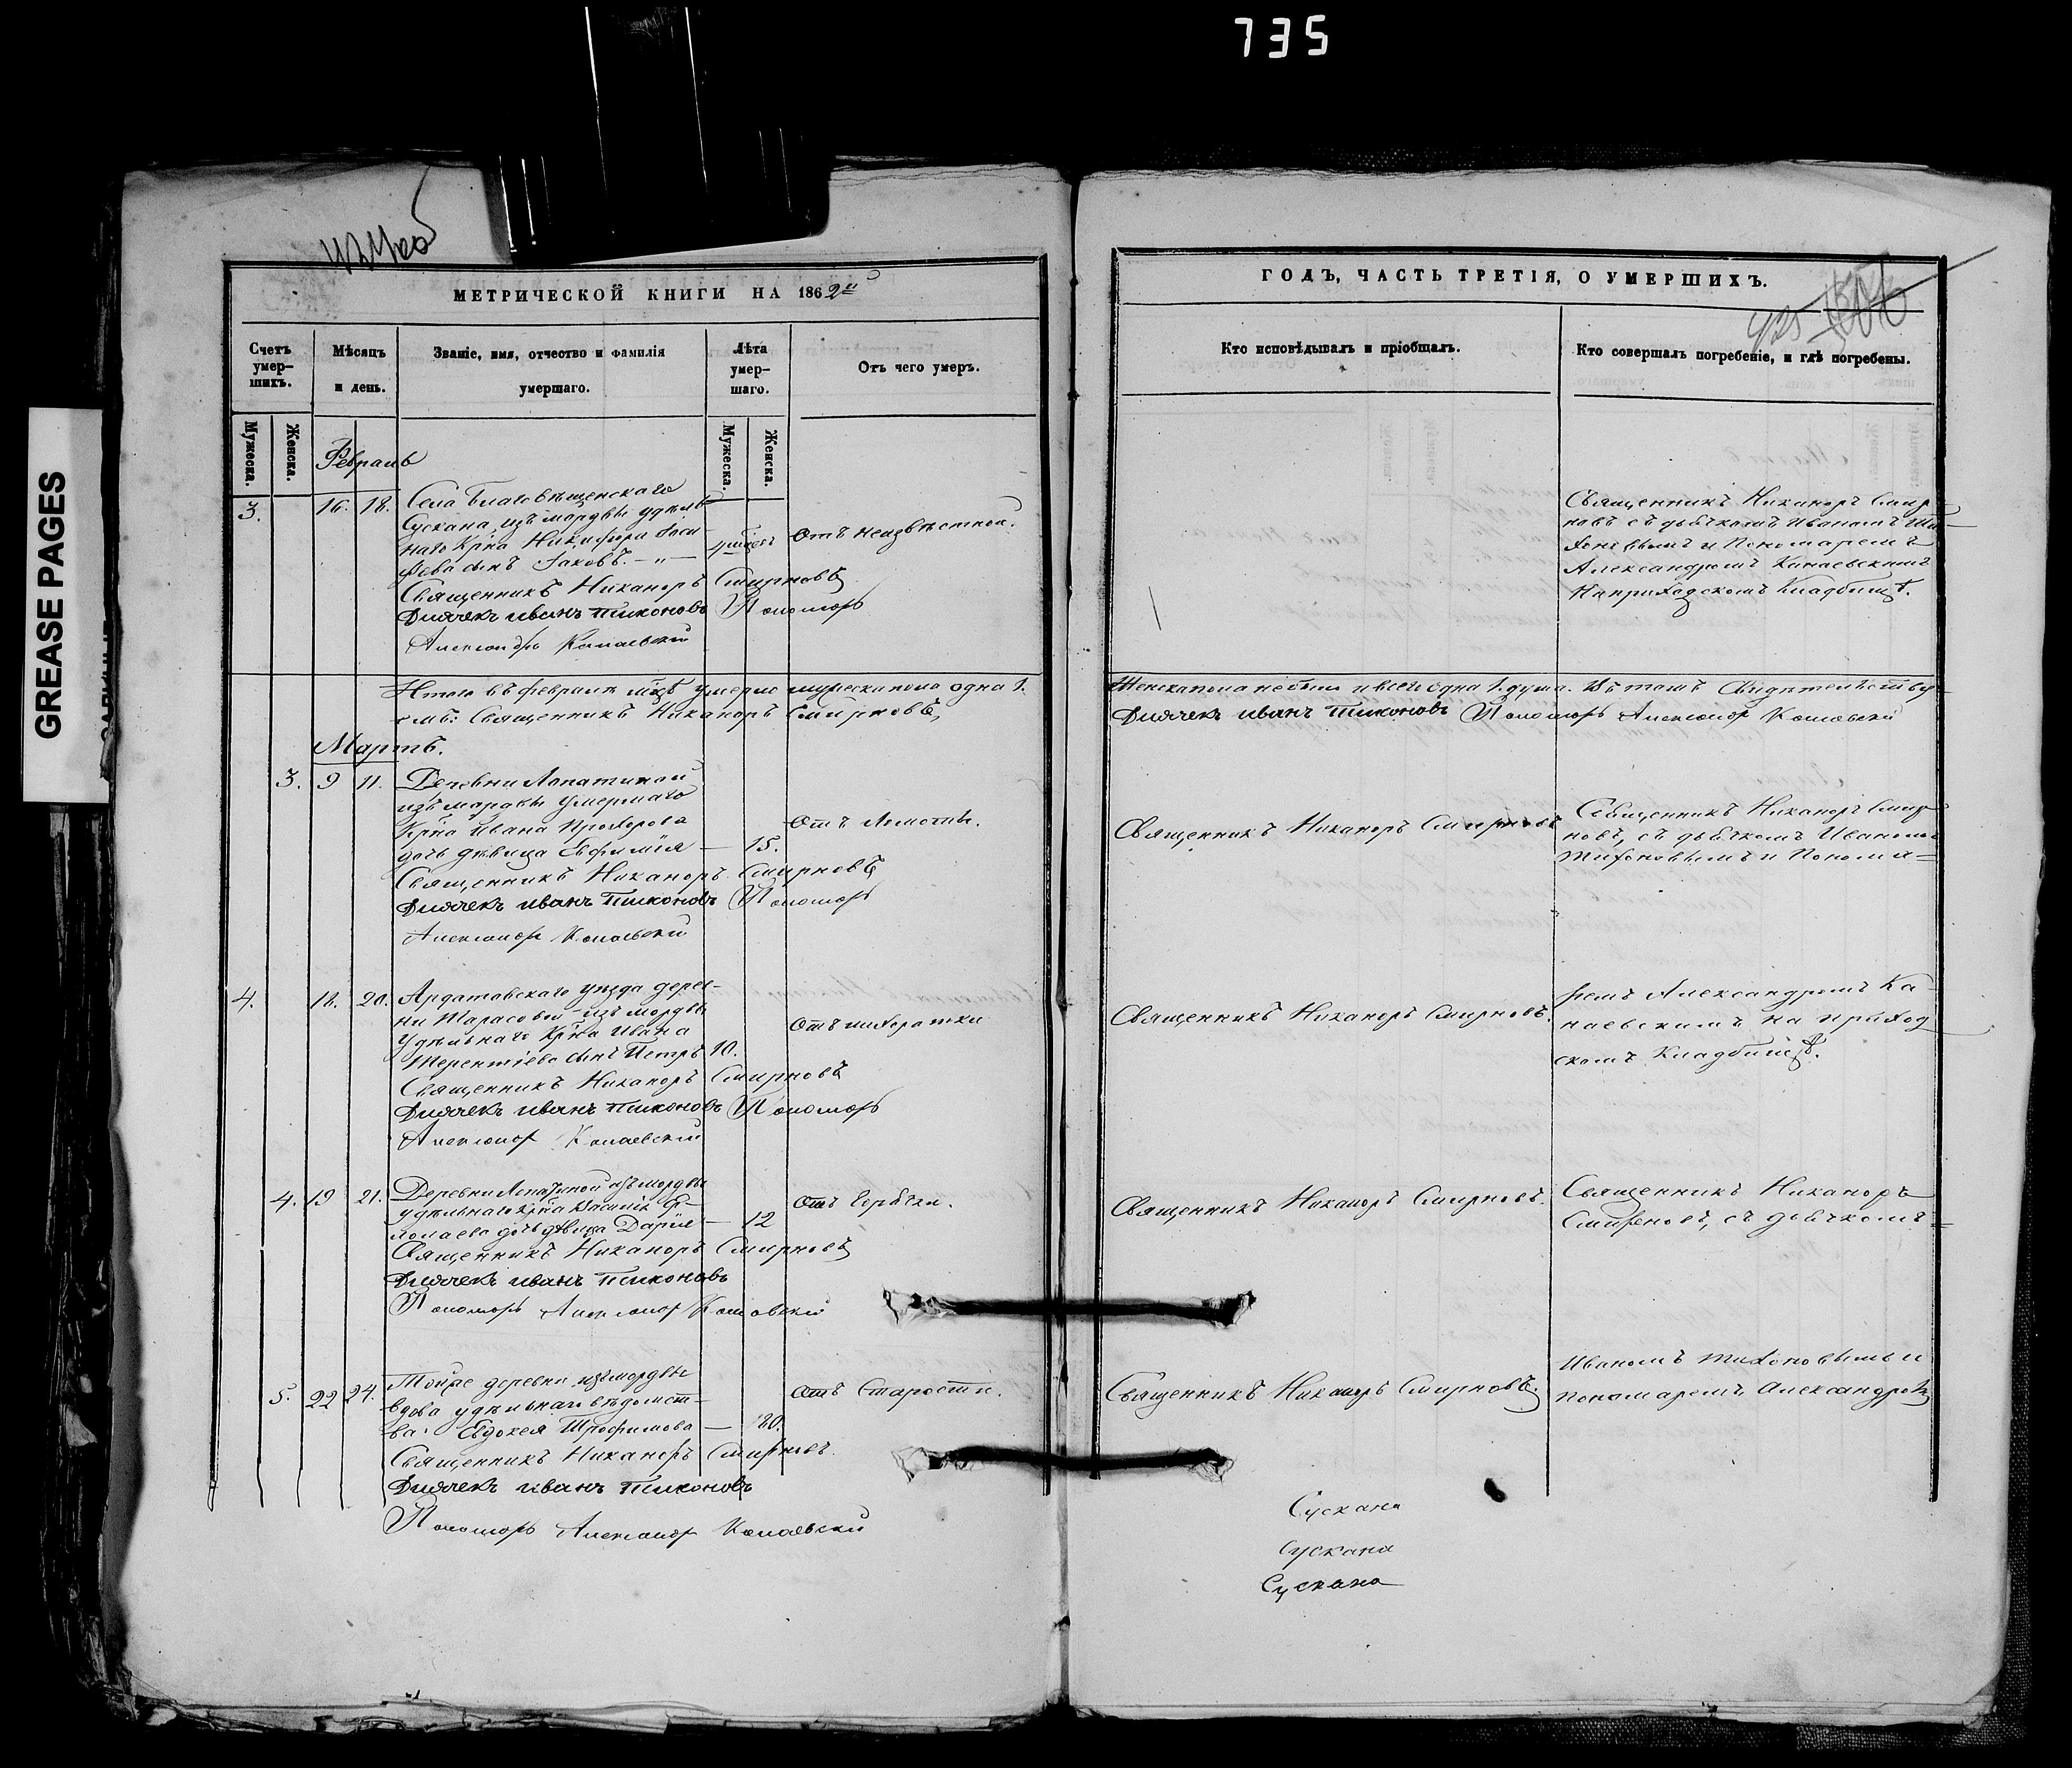 735
GREASE PAGES
МЕТРИЧЕСКОЙ КНИГИ НА 1862й
Счетъ умер-
шихъ.
Мѣсяцъ
и день.
Званіе, имя, отчество и фамилія
умершаго.
Лѣта
умер-
шаго.
Отъ чего умеръ.
Мужеска.
Женска.
Мужеска.
Женска.
Февраль
3. 16. 18. Села Благовѣщенскаго
Сускана, изъ мордвы удѣль-
наго Крна Никифора
сынъ Іаковъ. — „ —
Отъ неизвѣстной.
Священникъ Никаноръ Смирновъ
Дьячекъ иванъ тихоновъ Пономарь
Александръ Канаевскій
Итого въ февралѣ мцѣ умерло мужеска пола одна 1.
Священникъ Никаноръ Смирновъ,
Мартъ.
3. 9 11. Деревни Лопатиной
изъ мордвы умершаго
Крна Ивана Прохорова
дочь дѣвица Евфимія — 15.
Священникъ Никаноръ Смирновъ
Дьячекъ иванъ тихоновъ Пономарь
Александръ Канаевскій
4. 18. 20. Ардатовскаго уѣзда дерев-
ни Тарасовой изъ мордвы
Удѣльнаго Крна Ивана
Терентіева сынъ Петръ 10.
Отъ лихорадки
Священникъ Никаноръ Смирновъ
Дьячекъ иванъ тихоновъ Пономарь
Александръ Канаевскій
4. 19 21. Деревни Лопатиной изъ мордвы
удѣльнаго крна Василія Ер-
молаева дочь дѣвица Дарія — 12
Отъ Горячки.
Священникъ Никаноръ Смирновъ
Дьячекъ иванъ тихоновъ
Пономарь Александръ Канаевскій
5. 22 24. Тойже деревни изъ мордвы
вдова удѣльнаго вѣдомст-
ва. Евдокея Трофимова — 80.
Отъ Старости.
Священникъ Никаноръ Смирновъ
Дьячекъ иванъ тихоновъ
Пономарь Александръ Канаевскій
ГОДЪ, ЧАСТЬ ТРЕТІЯ, О УМЕРШИХЪ.
Кто исповѣдывалъ и пріобщалъ.
Кто совершалъ погребеніе, и гдѣ погребены.
Священникъ Никаноръ Смир-
новъ съ дьячкомъ Иваномъ Ти-
хоновымъ и Пономаремъ
Александромъ Канаевскимъ
На приходскомъ Кладбищѣ.
Женска пола не было и всего одна 1. душа. Въ томъ Свидѣтельству-
Дьячекъ иванъ тихоновъ Пономарь Александръ Канаевскій
Священникъ Никаноръ Смирновъ
Священникъ Никаноръ Смир-
новъ, съ дьячкомъ Иваномъ
Тихоновымъ и Понома-
Священникъ Никаноръ Смирновъ.
ремъ Александромъ Ка-
наевскимъ на приход
скомъ Кладбищѣ.
Священникъ Никаноръ Смирновъ.
Священникъ Никаноръ
Смирновъ, съ дьячкомъ
Священникъ Никаноръ Смирновъ.
Иваномъ Тихоновымъ и
пономаремъ Александромъ
Сускана
Сускана
Сускана